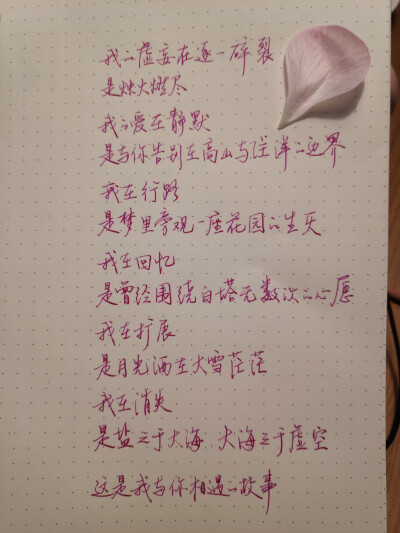 我的虚妄在逐一碎裂
是烛火燃尽
我的爱在静默
是与你告别在高山与汪洋的边界
我在行路
是梦里旁观一座花园的生灭
我在回忆
是曾经围绕白塔无数次的心愿
我在扩展
是月光洒在大雪茫茫
我在消失
是盐之于大海 大海之于虚空
这是我与你相遇的故事